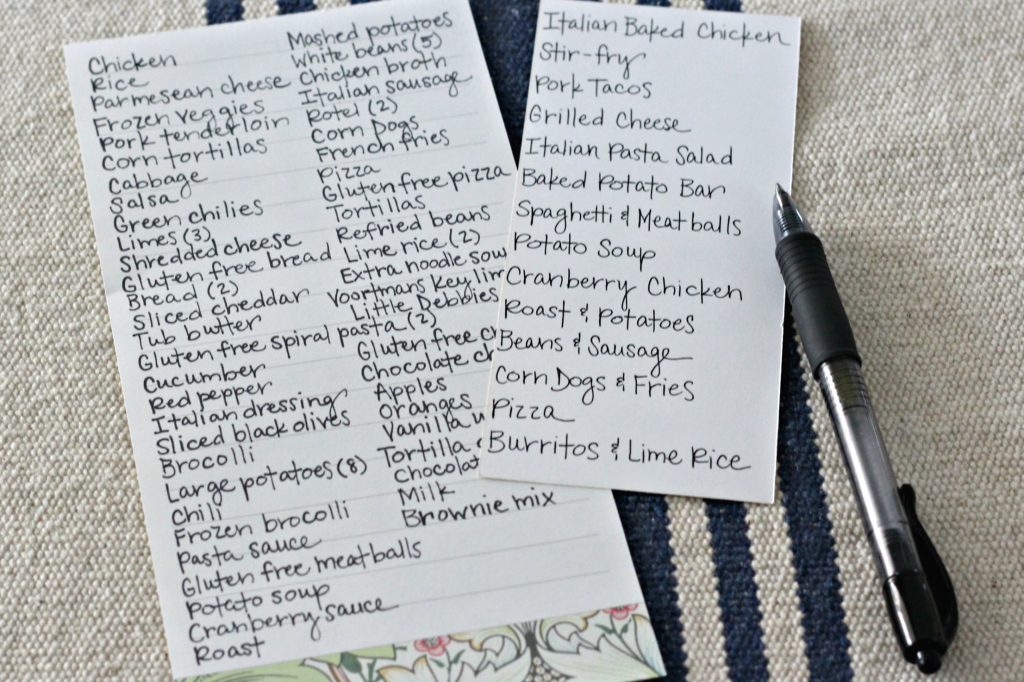 Chicken
Rice
Parmesean cheese
Frozen veggies
Pork tenderloin
Corn tortillas
Cabbage
Salsa
Green chilies
Limes (3)
Shredded cheese
Gluten free bread
Bread (2)
Sliced cheddar
Tub butter
Gluten free spiral pasta (2)
Cucumber
Red pepper
Italian dressing
Sliced black olives
Brocolli
Large potatoes (8)
Chili
Frozen brocolli
Pasta sauce
Gluten free meatballs
Potato soup
Cranberry sauce
Roast
Mashed potatoes
White beans (5)
Chicken broth
Italian sausage
Rotel (2)
Corn Dogs
French fries
Pizza
Gluten free pizza
Tortillas
Refried beans
Lime rice (2)
Extra noodle
Voortmans Key
Little Debbies
Gluten free
Chocolate
Apples
Oranges
Vanilla
Tortilla
Milk
Brownie mix
Italian Baked Chicken
Stir-fry
Pork Tacos
Grilled Cheese
Italian Pasta Salad
Baked Potato Bar
Spaghetti & Meatballs
Potato Soup
Cranberry Chicken
Roast & Potatoes
Beans & Sausage
Corn Dogs & Fries
Pizza
Burritos & Lime Rice